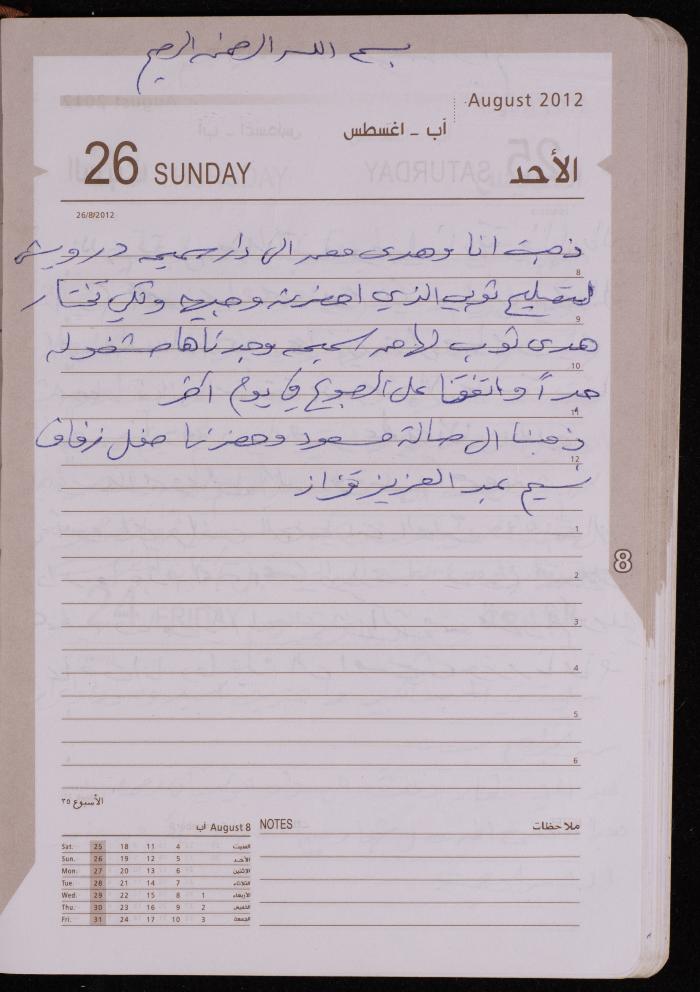 بسم الله الرحمن الرحيم
August 2012
آب ـ اغسطس
26 SUNDAY الأحد
26/8/2012
ذهبت انا وهدى محمد الى دار سميحه درويش
لتصليح ثوبي الذي احضرته وجيهه ولكي تختار
هدى ثوب لأحمد سميحه وجدناها مشغوله
8
9
10
جداً واتفقنا على الرجوع في يوم اخر
11
ذهبنا الى صالة مسعود وحضرنا حفل زفاف
12
نسيم عبد العزيز قزاز
1
2
8
3
4
5
6
الأسبوع ٣٥
August 8 آب
NOTES ملاحظات
Sat. 25 18 11 4 السبت
Sun. 26 19 12 5 الأحد
Mon. 27 20 13 6 الاثنين
Tue. 28 21 14 7 الثلاثاء
Wed. 29 22 15 8 1 الأربعاء
Thu. 30 23 16 9 2 الخميس
Fri. 31 24 17 10 3 الجمعة